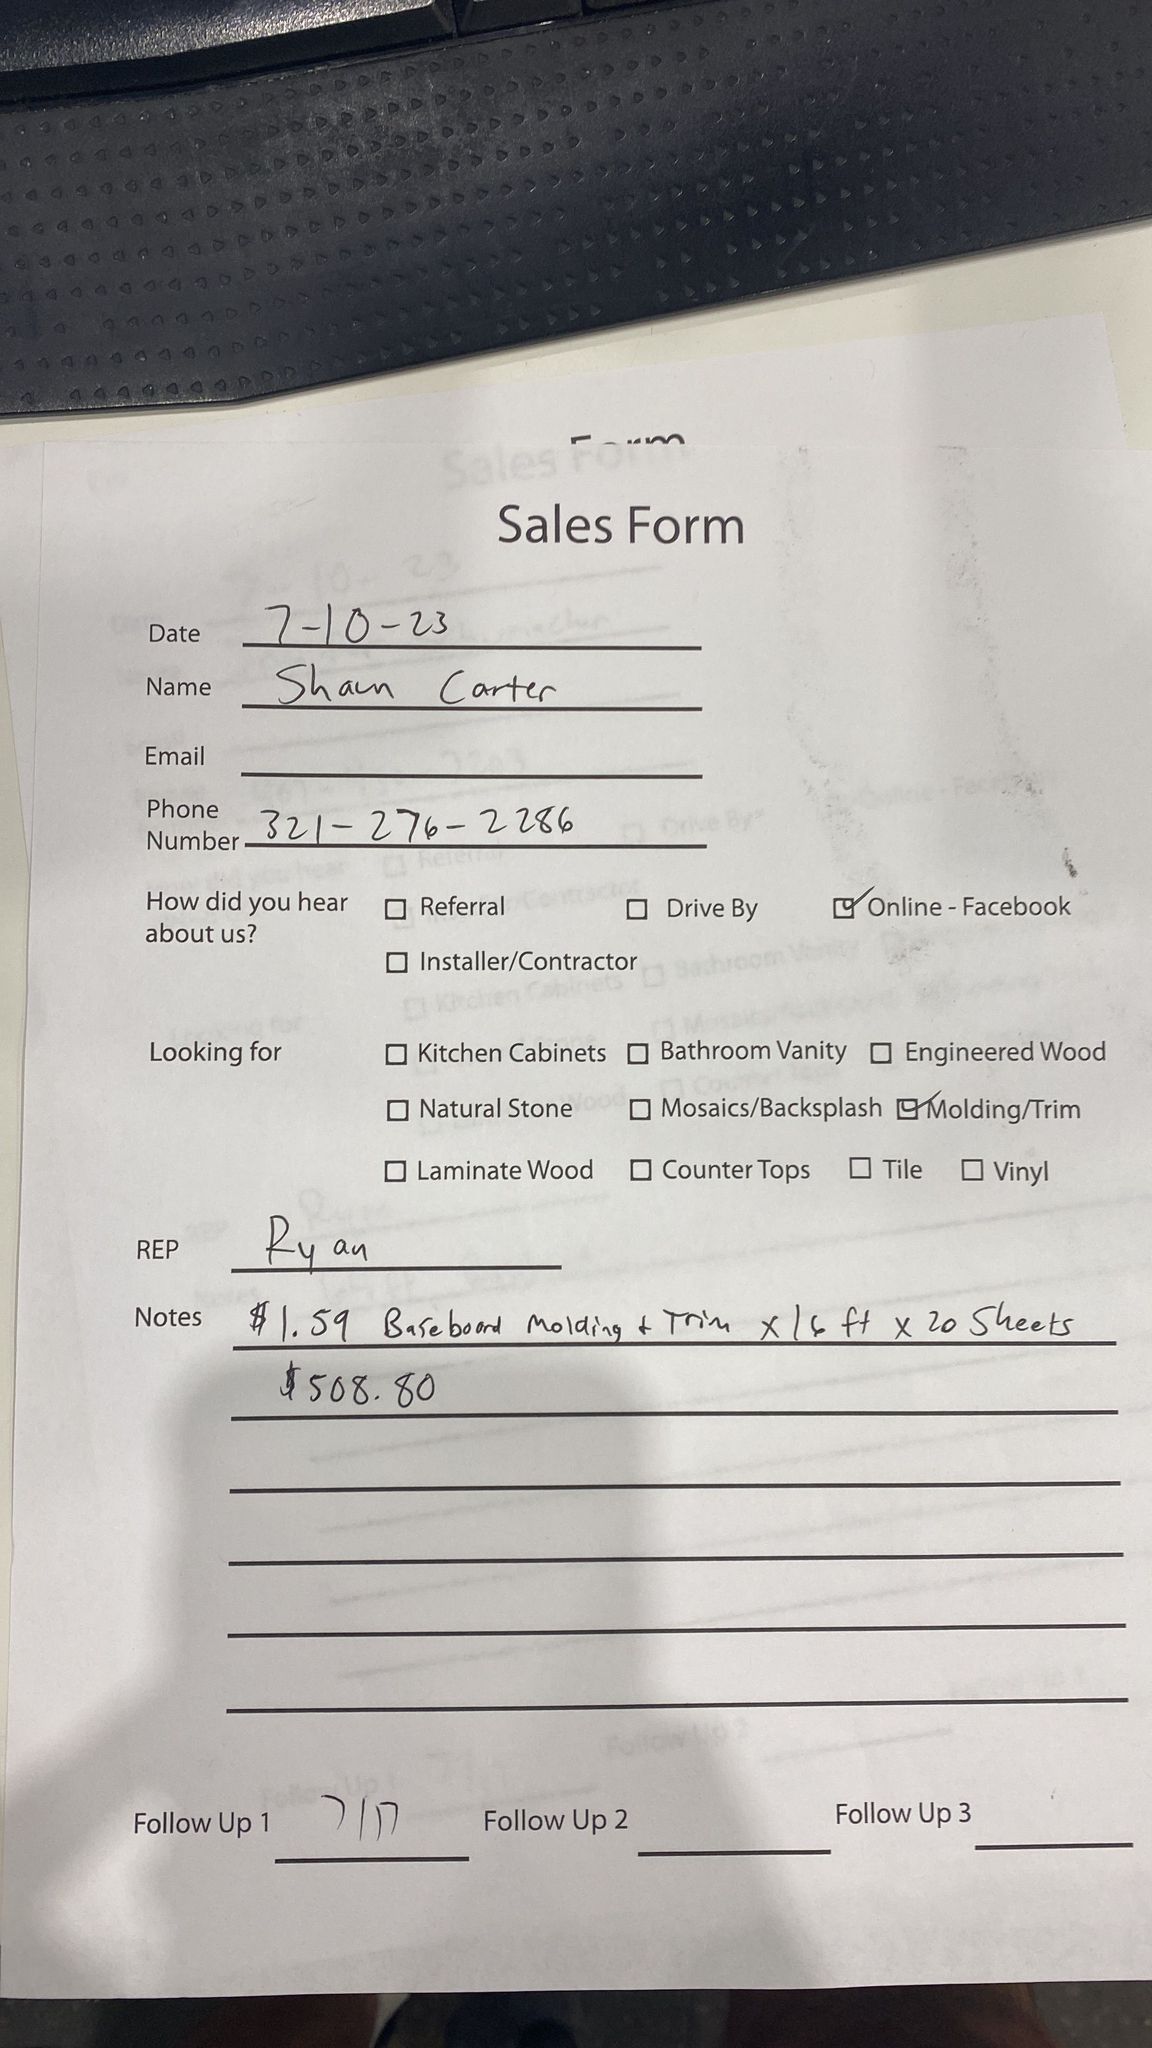 Form
Sales Form
Date 7-10-23
Name Shaun Carter
Email
Phone Number 321-276-2286
How did you hear about us? Referral Drive By Online - Facebook
Installer/Contractor
Looking for Kitchen Cabinets Bathroom Vanity Engineered Wood
Natural Stone Mosaics/Backsplash Molding/Trim
Laminate Wood Counter Tops Tile Vinyl
REP Ryan
Notes $1.59 Baseboard Molding + Trim x 16 ft x 20 Sheets
$508.80
Follow Up 1 7/17 Follow Up 2 Follow Up 3